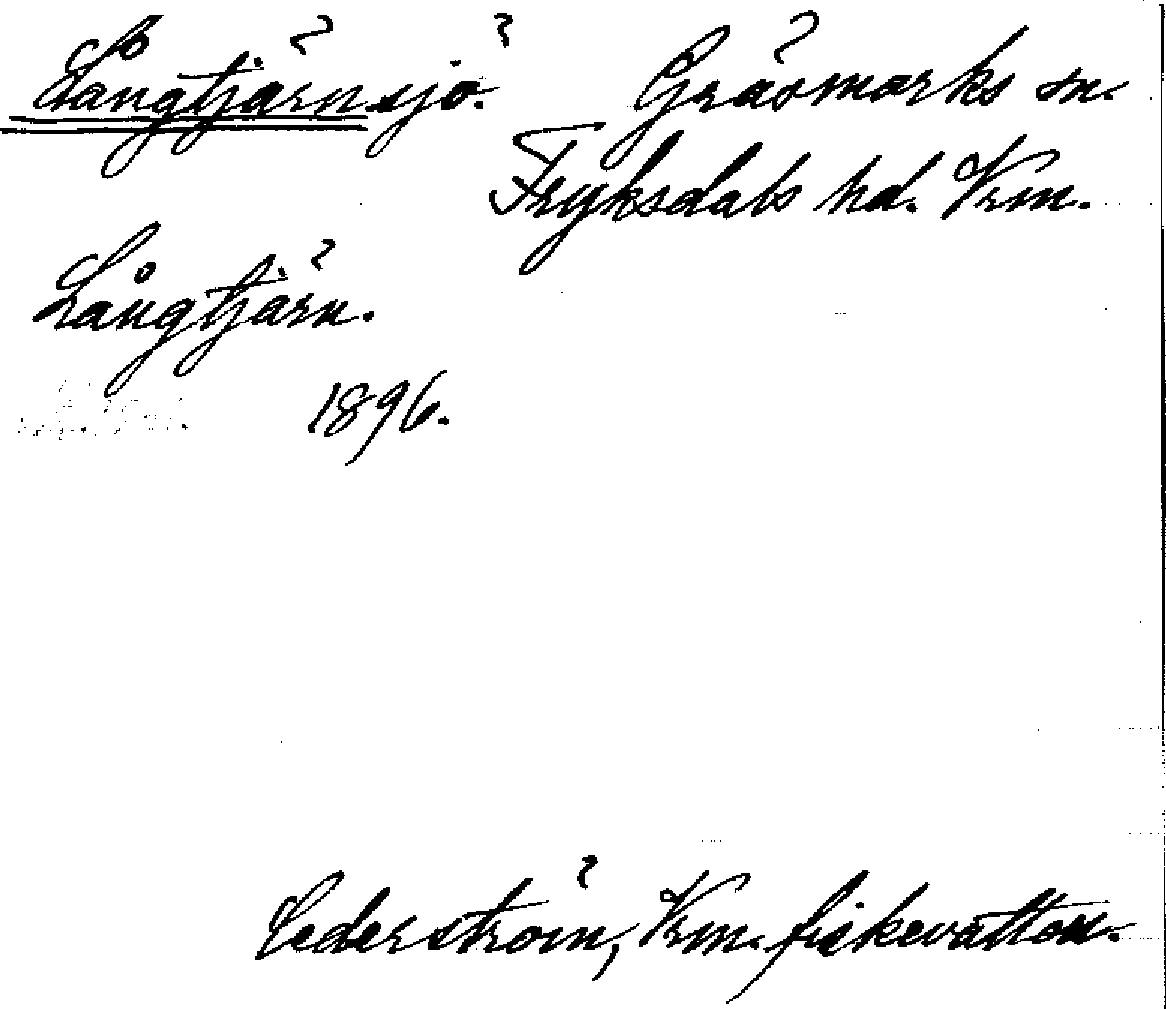 Långtjärnsjö. Gräsmarks sn.
Fryksdals hd. Vrm.
Långtjärn.
1896.
Cederström, Vrm. fiskevatten.